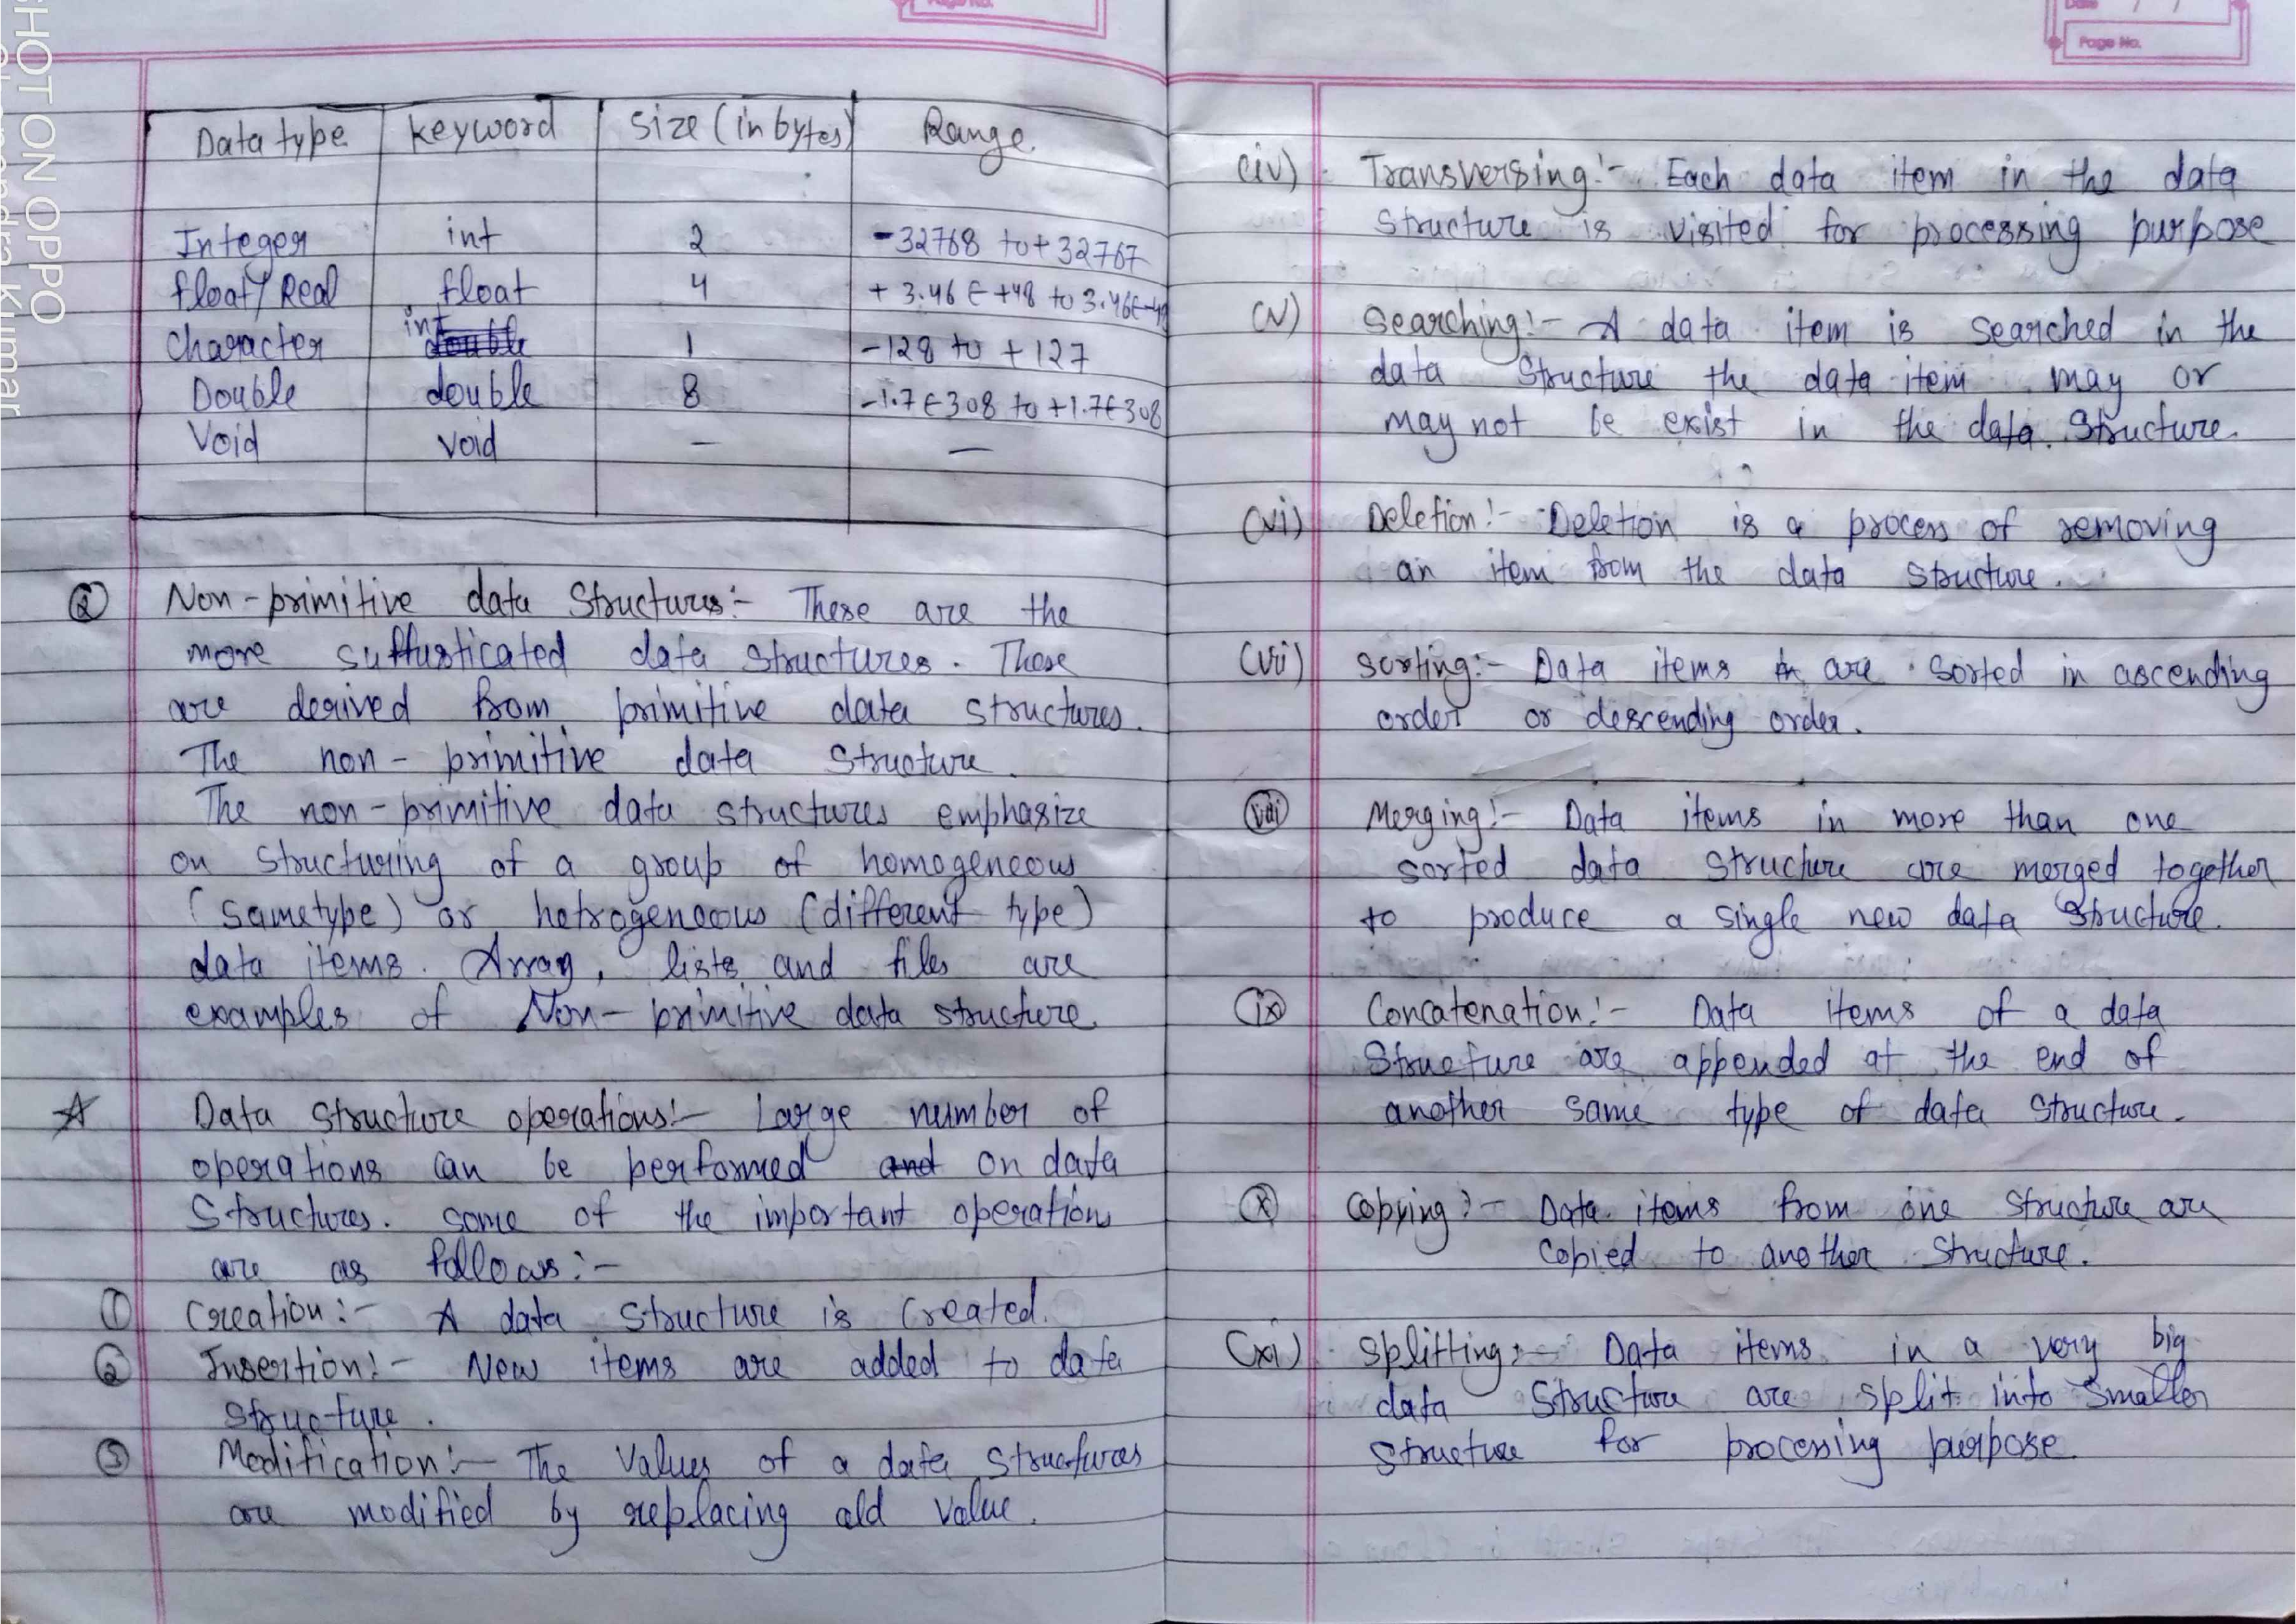 Page No.
Data type keyword size (in bytes) Range
Integer int 2 -32768 to +32767
float/Real float 4 + 3.46 E +48 to 3.46E-49
Character int 1 -128 to +127
Double double 8 -1.7E308 to +1.7E308
Void void — —
② Non-primitive data Structures:- These are the
more suffusticated data structures. These
are derived from primitive data structures.
The non-primitive data structure.
The non-primitive data structures emphasize
on structuring of a group of homogeneous
(sametype) or hetrogeneous (different type)
data items. Array, lists and files are
examples of Non-primitive data structure.
☆ Data structure operations:- Large number of
operations can be performed and on data
Structures. some of the important operation
are as follows:-
① Creation:- A data structure is created.
② Insertion:- New items are added to data
structure.
③ Modification:- The values of a data structures
are modified by replacing old value.
Date / /
Page No.
(iv) Transversing:- Each data item in the data
structure is visited for processing purpose
(v) Searching:- A data item is searched in the
data structure the data item may or
may not be exist in the data structure.
(vi) Deletion:- Deletion is a process of removing
an item from the data structure.
(vii) sorting:- Data items in are sorted in ascending
order or descending order.
(viii) Merging:- Data items in more than one
sorted data structure are merged together
to produce a single new data structure.
(ix) Concatenation:- Data items of a data
structure are appended at the end of
another same type of data structure.
(x) Copying:- Data items from one structure are
copied to another structure.
(xi) Splitting:- Data items in a very big
data structure are split into smaller
structure for processing purpose.
SHOT ON OPPO
Kumar